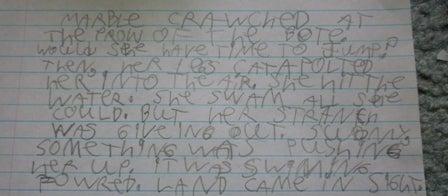 MARBLE CRAWCHED AT
THE PROW OF THE BOTE.
WOULD SHE HAVE TIME TO JUMP?
THEN, HER LEGS CATAPOLTED
HER INTO THE AIR. SHE HIT THE
WATER. SHE SWAM ALL SHE
COULD. BUT HER STRANCH
WAS GIVEING OUT. SUDINLY,
SOMETHING WAS PUSHING
HER UP. IT WAS SWIMING
TOWRED. LAND CAME IN SIGHT.